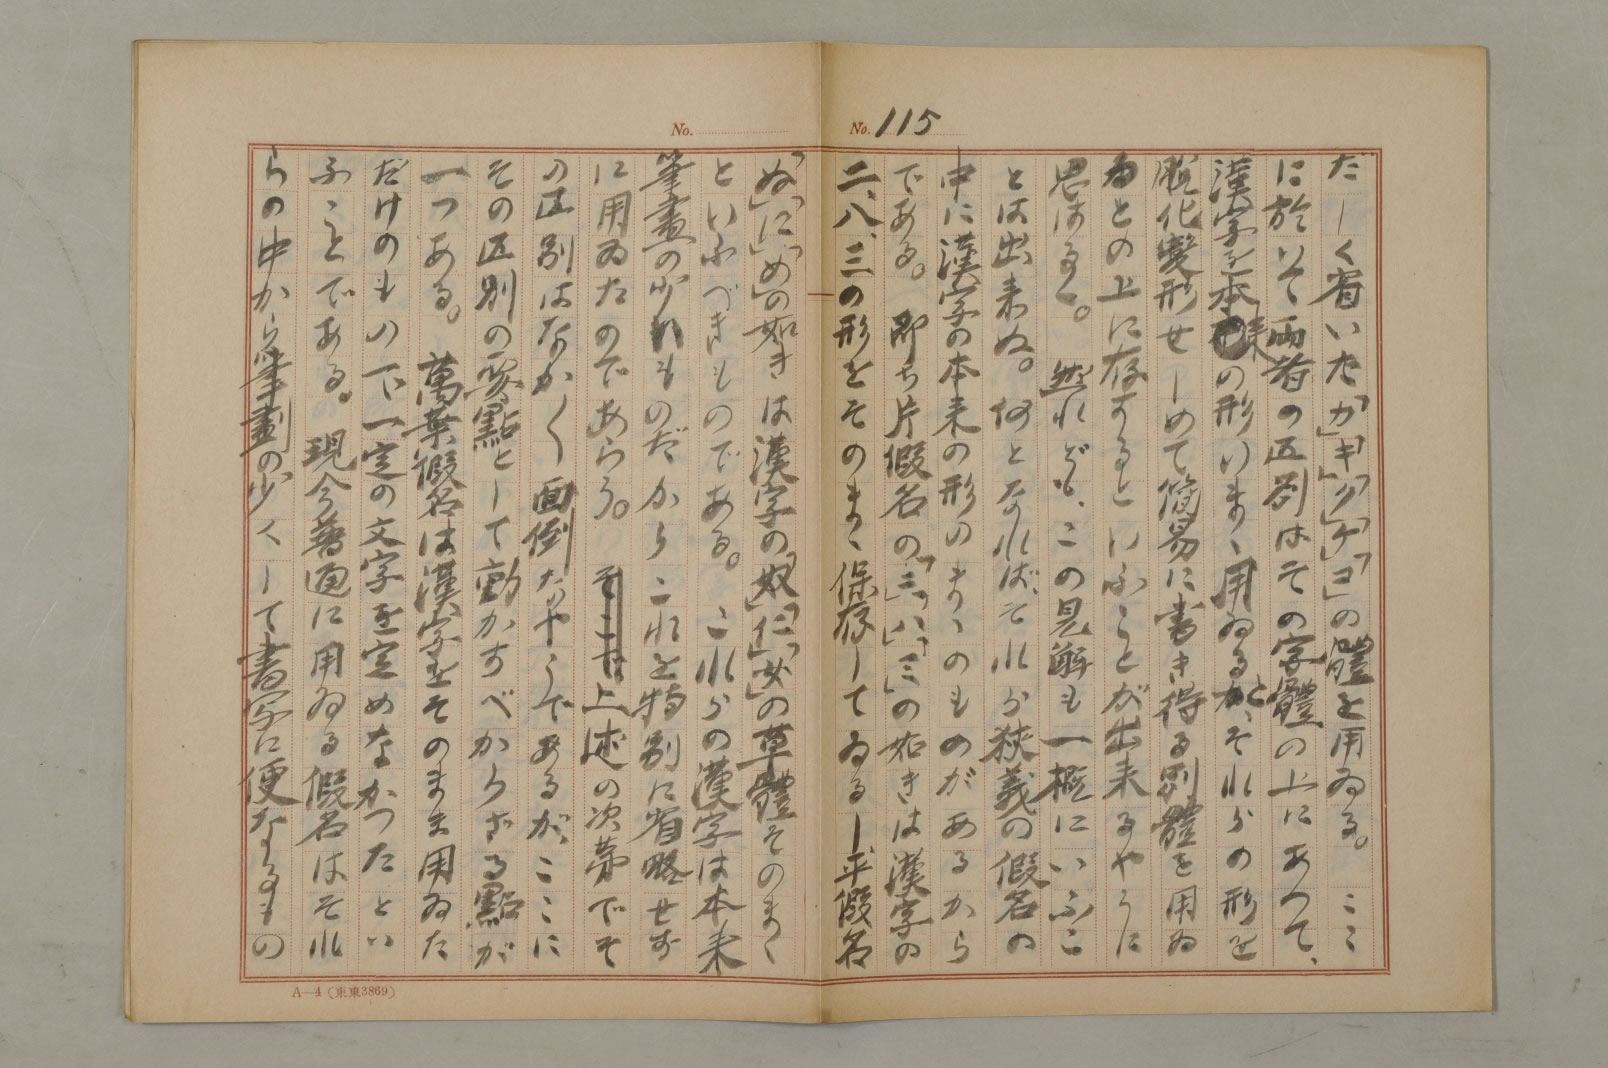 No. 115
だしく省いた「カ」「キ」「ク」「ケ」「ヨ」の體を用ゐる。ここ
に於いて兩者の區別はその字體の上にあつて、
漢字を本樣の形のまゝ用ゐると、それらの形を
脱化變形せしめて簡易に書き得る別體を用ゐ
るとの上に存するといふことが出来るやうに
思はるゝ。然れども、この見解も一概にいふこ
とは出来ぬ。何となれば、それら狹義の假名の
中に漢字の本来の形のまゝのものがあるから
である。即ち片假名の「ニ」「ハ」「ミ」の如きは漢字の
二、八、三の形をそのまゝ保存してゐるし平假名
No.
「ぬ」「に」「め」の如きは漢字の「奴」「仁」「女」の草體そのまゝ
といふべきものである。これらの漢字は本来
筆畫の少いものだからこれを特別に省略せず
に用ゐたのであらう。上述の次第でそ
の區別はなか〱面倒なやうであるが、ここに
その區別の要點として動かすべからざる點が
一つある。萬葉假名は漢字をそのまま用ゐた
だけのもので一定の文字を定めなかつたとい
ふことである。現今普通に用ゐる假名はそれ
らの中から筆劃の少くして書写に便なるもの
A—4 (東東3869)